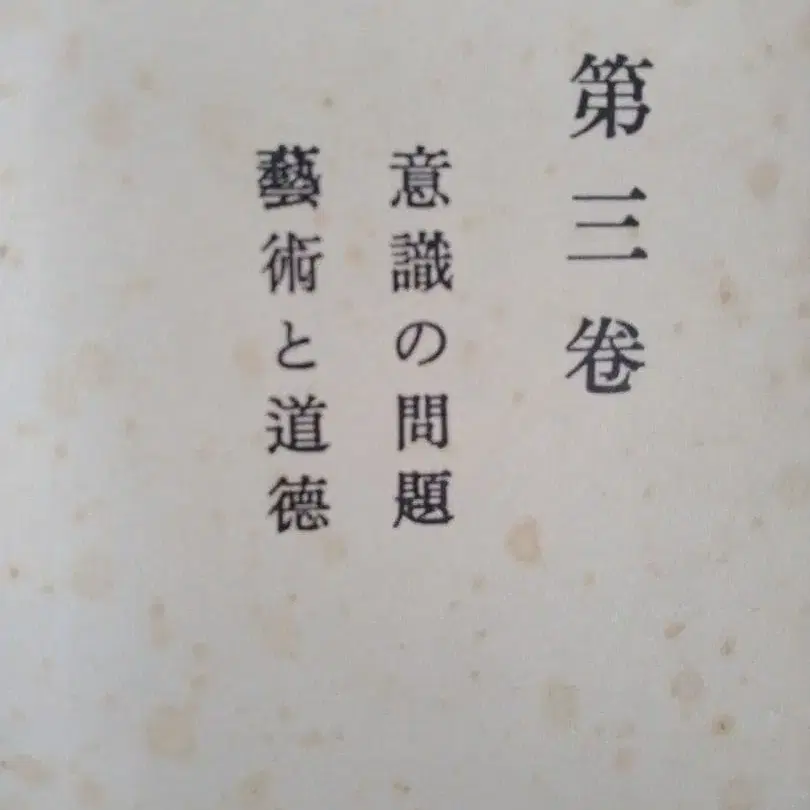 第三卷
意識の問題
藝術と道德